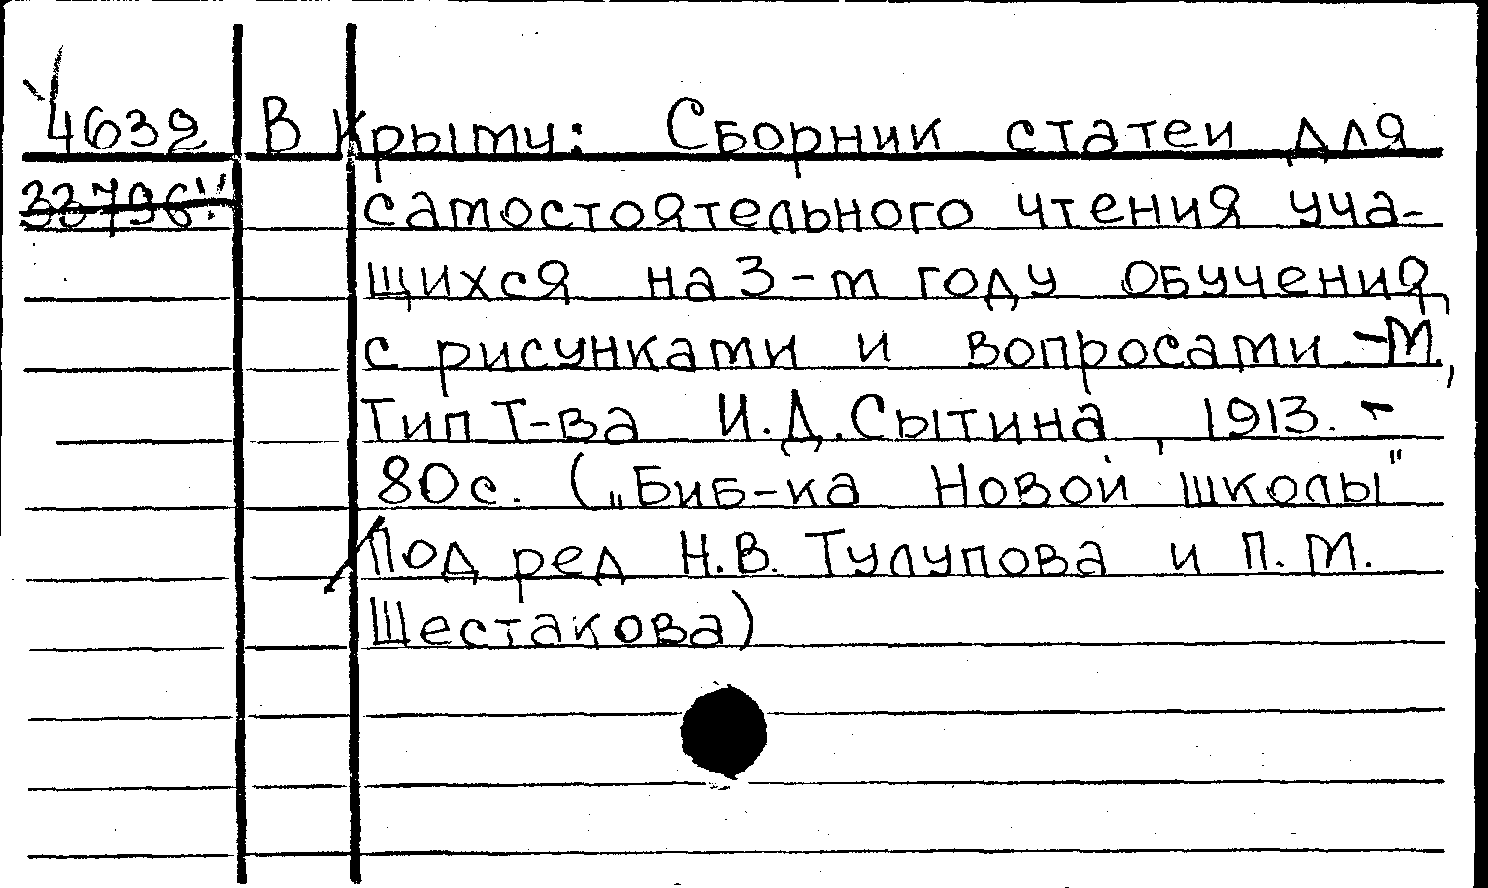 4632 В Крыму: Сборник статей для
33796!!
самостоятельного чтения уча-
щихся на 3-м году обучения,
с рисунками и вопросами -М.,
Тип Т-ва И.Д.Сытина, 1913. -
80с. („Биб-ка Новой школы"
Под ред Н.В. Тулупова и П.М.
Шестакова)